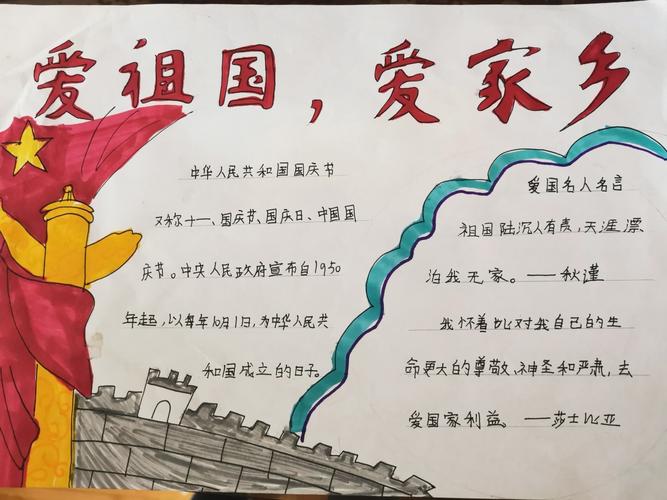 爱祖国，爱家乡
中华人民共和国国庆节
又称十一、国庆节、国庆日、中国国
庆节。中央人民政府宣布自1950
年起，以每年10月1日，为中华人民共
和国成立的日子。
爱国名人名言
祖国陆沉人有责，天涯漂
泊我无家。——秋谨
我怀着比对我自己的生
命更大的尊敬、神圣和严肃，去
爱国家利益。——莎士比亚